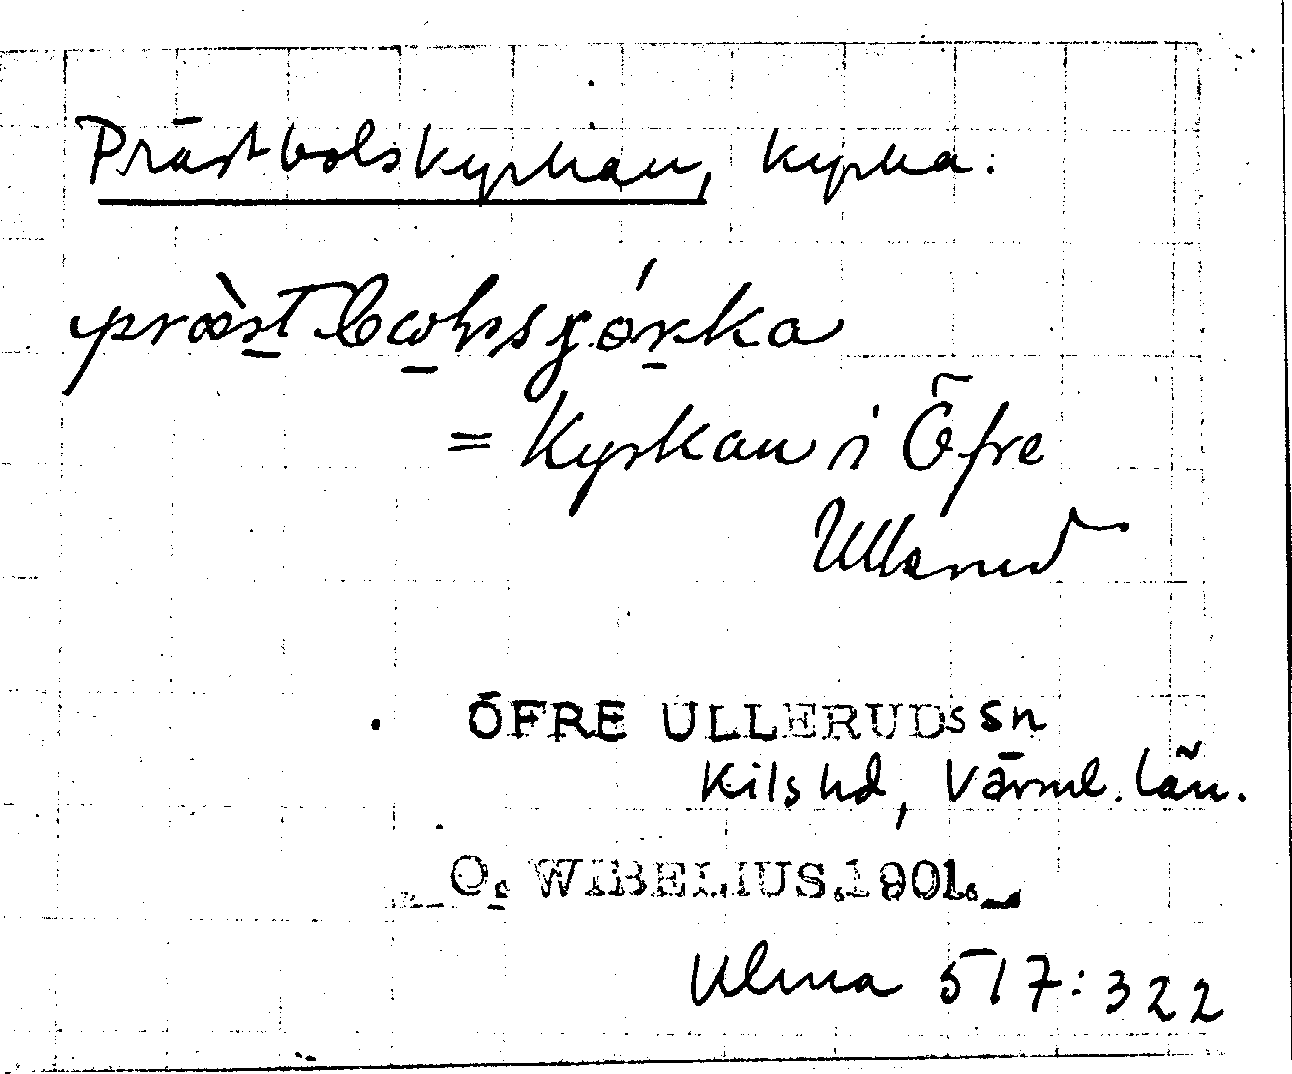 Prästbolskyrkan, kyrka.
= Kyrkan i Öfre
Ullerud
ÖFRE ULLERUDs sn
Kils hd, Värml. län.
O. WIBELIUS.1901.
Ulma 517:322